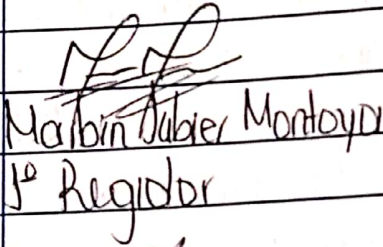 Marbin Dubier Montoya
1º Regidor